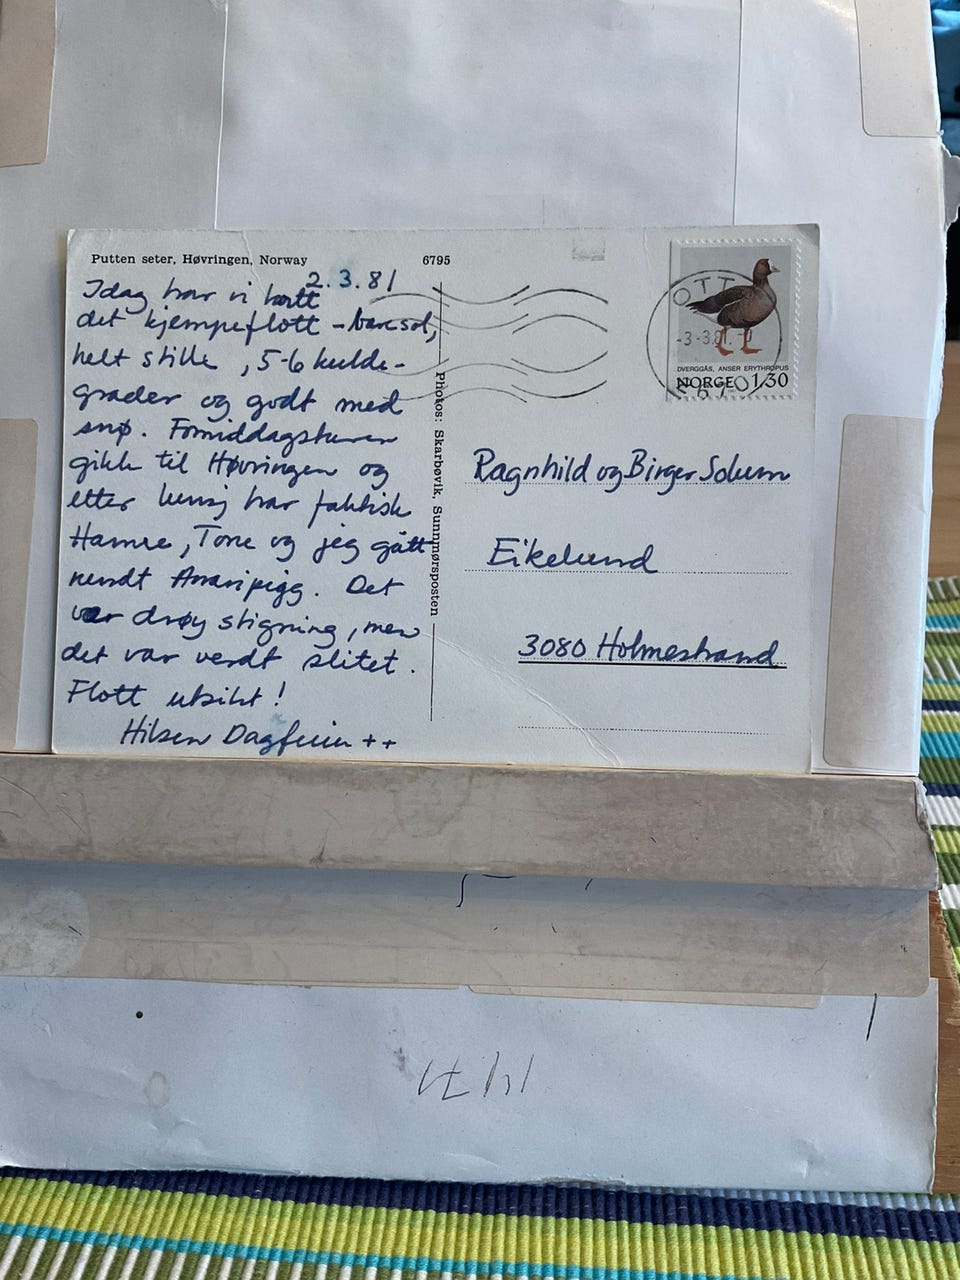 Putten seter, Høvringen, Norway
6795
2.3.81
Idag har vi hatt
det kjempeflott - bare sol,
helt stille, 5-6 kulde-
grader og godt med
snø. Formiddagsturen
gikk til Høvringen og
etter lunsj har faktisk
Hanne, Tone og jeg gått
rundt Anaripigg. Det
var drøy stigning, men
det var verdt slitet.
Flott utsikt!
Hilsen Dagfinn ++
Photos: Skarbøvik, Sunnmørsposten
OTTA
-3-3.81.
2670
DVERGGÅS, ANSER ERYTHROPUS
NORGE 1,30
Ragnhild og Birger Solum
Eikelund
3080 Holmestrand